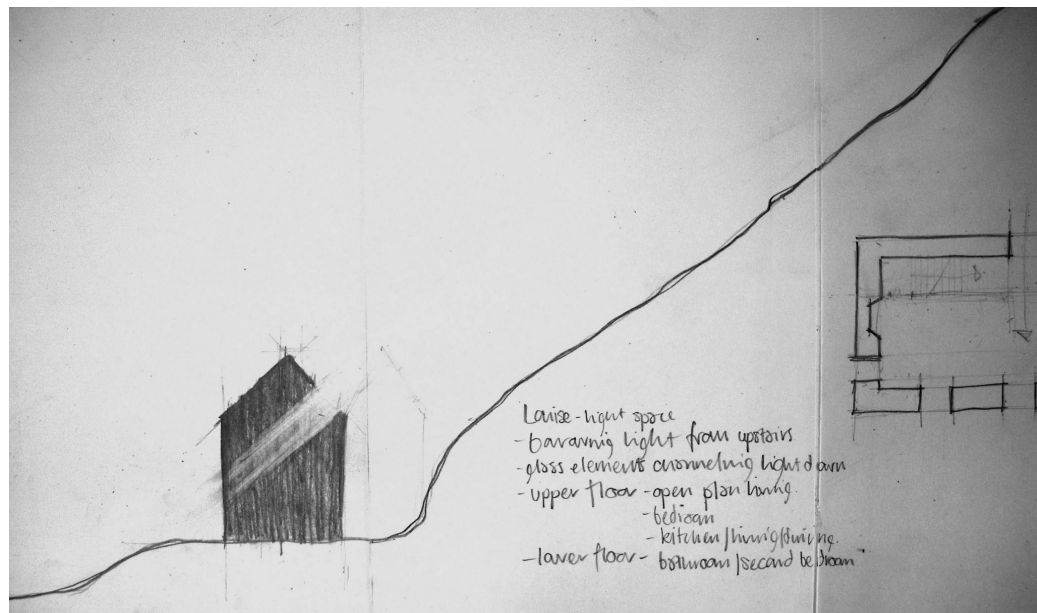 Louise - light space
- borrowing light from upstairs
- glass elements channeling light down
- upper floor - open plan living
- bedroom
- kitchen/living/dining.
- lower floor - bathroom/second bedroom